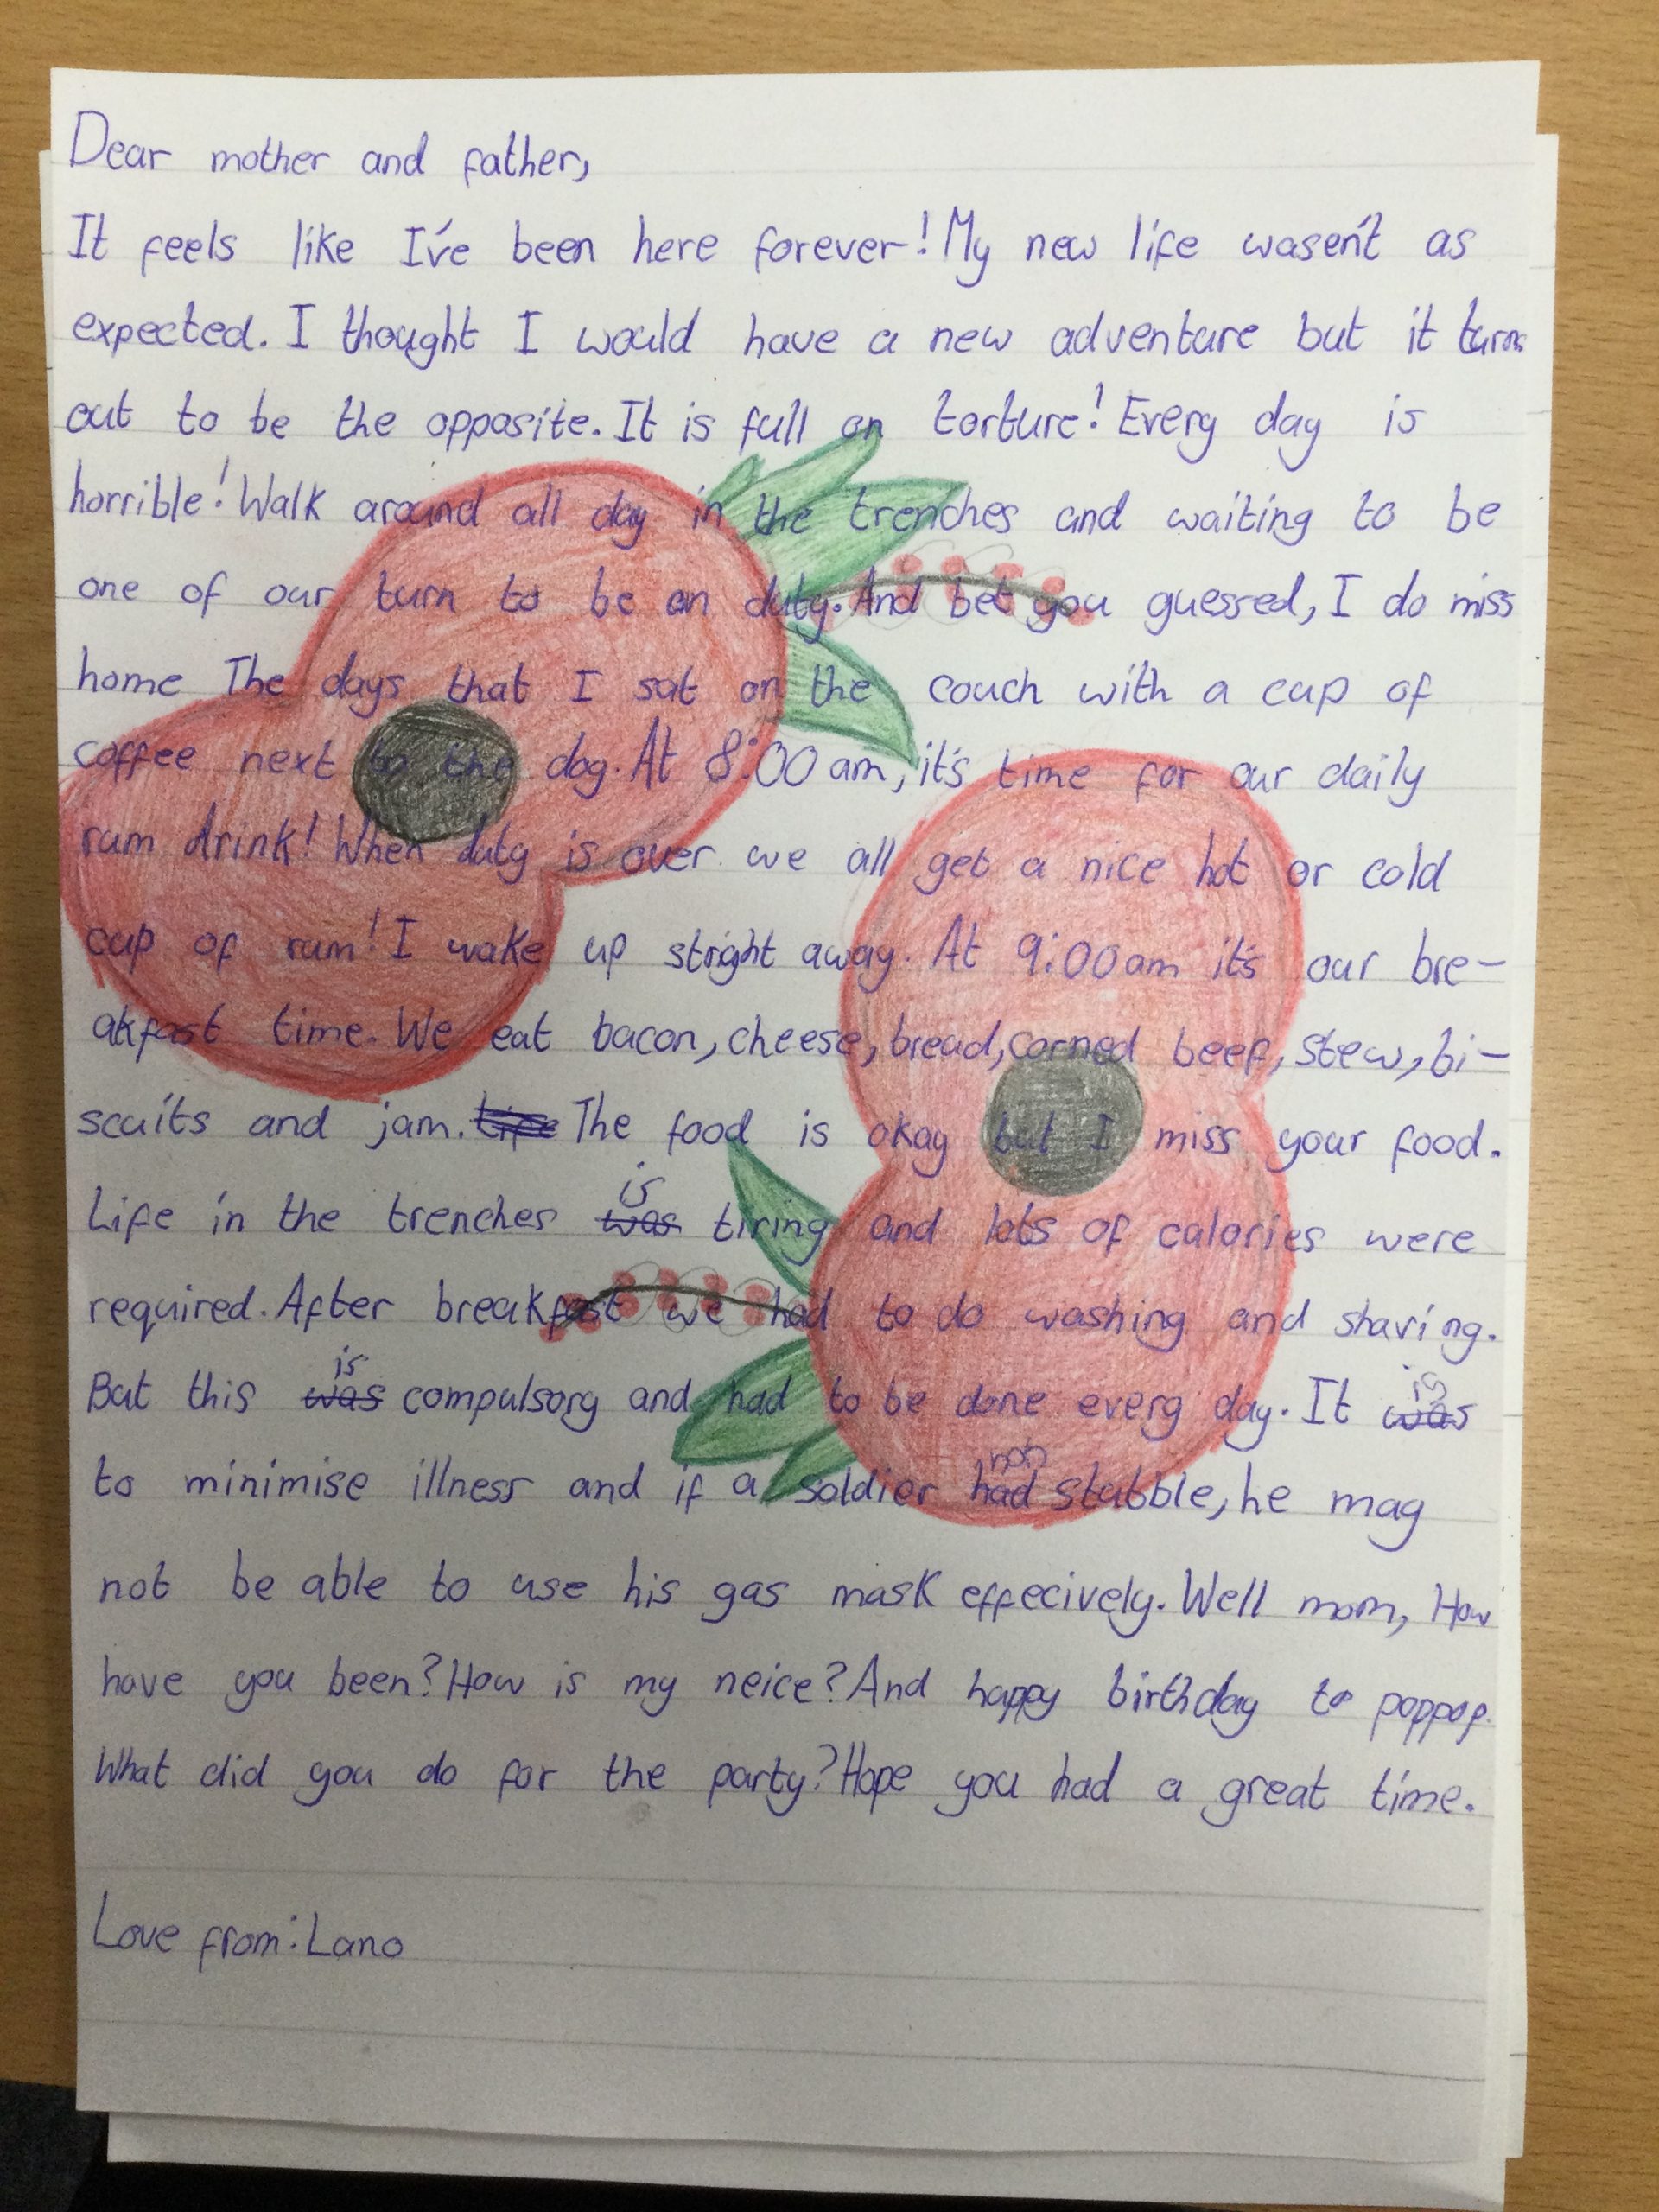 Dear mother and father,
It feels like I've been here forever! My new life wasen't as
expected. I thought I would have a new adventure but it turns
out to be the opposite. It is full on torture! Every day is
horrible! Walk around all day in the trenches and waiting to be
one of our turn to be on duty. And bet you guessed, I do miss
home The days that I sat on the couch with a cup of
coffee next to the dog. At 8:00 am, it's time for our daily
rum drink! When duty is over we all get a nice hot or cold
cup of rum! I wake up stright away. At 9:00am it's our bre-
akfast time. We eat bacon, cheese, bread, corned beef, stew, bi-
scuits and jam. The food is okay but I miss your food.
Life in the trenches is was tiring and lots of calories were
required. After breakfast we had to do washing and shaving.
But this is was compulsory and had to be done every day. It is was
to minimise illness and if a soldier had stubble, he may
not be able to use his gas mask effecively. Well mom, How
have you been? How is my neice? And happy birthday to poppop.
What did you do for the party? Hope you had a great time.
Love from: Lano